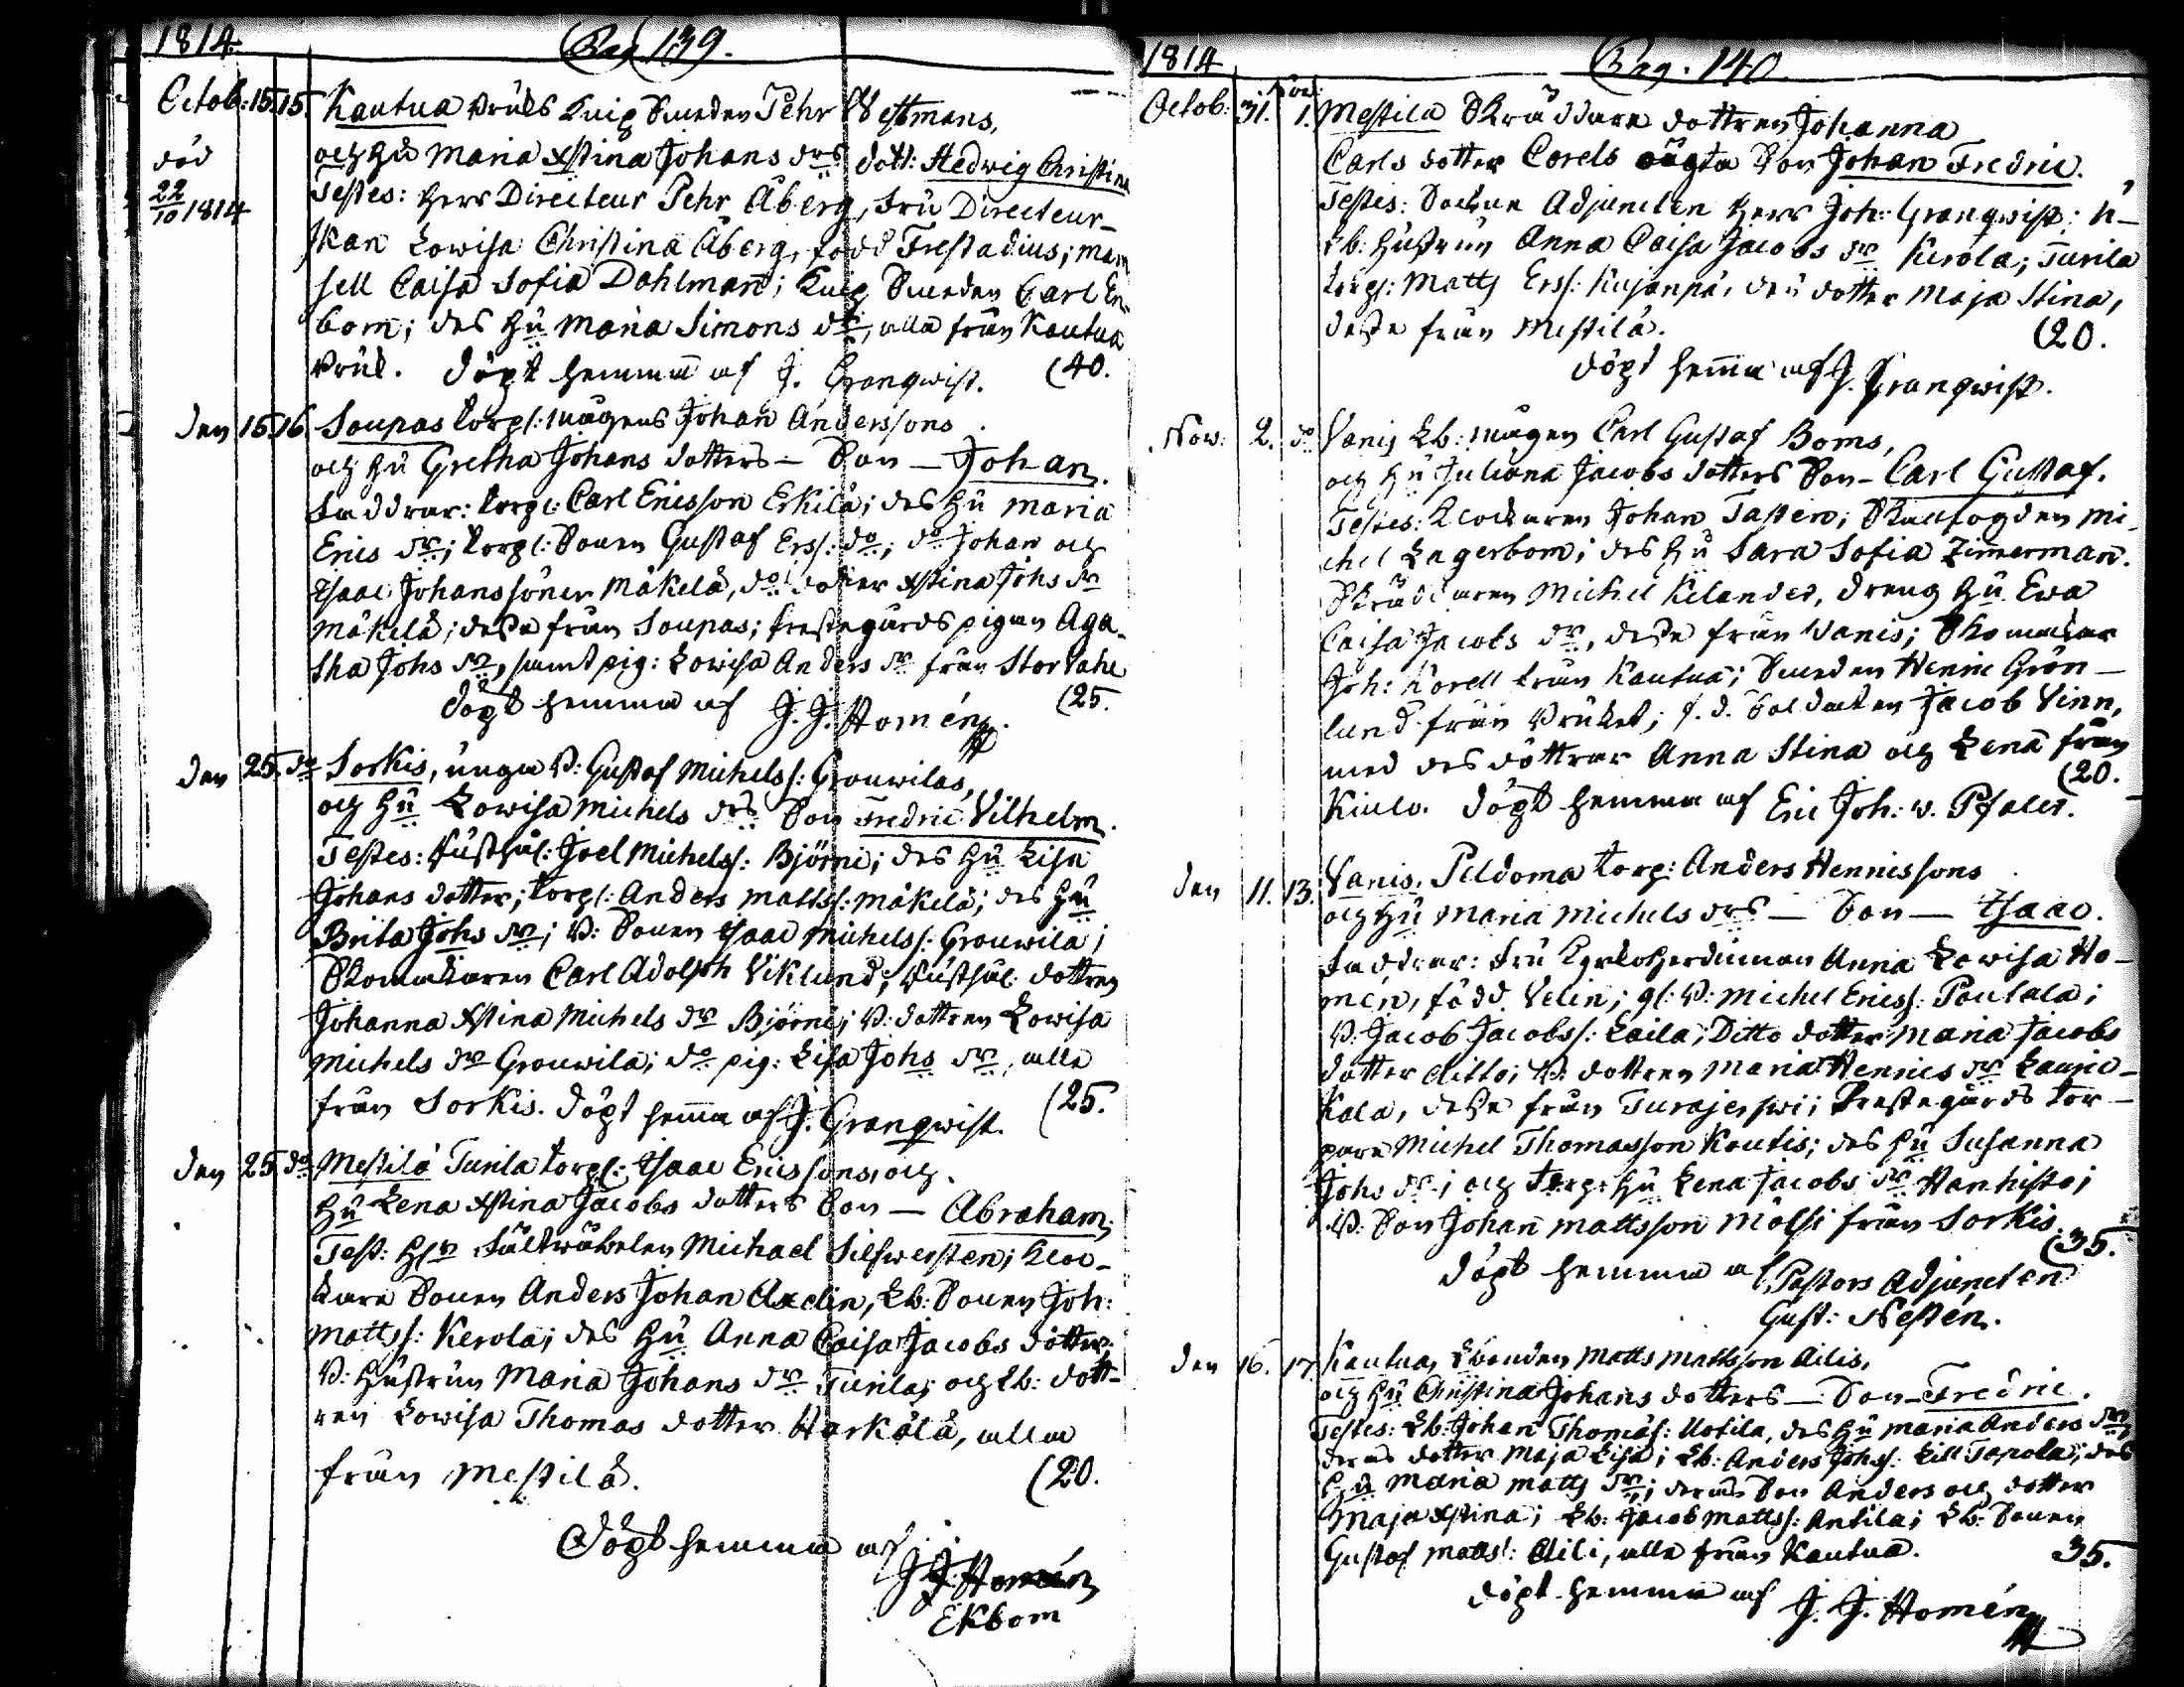 1814. Pag. 139.
Octob: 15. 15. Kautua Bruks Knip Smeden Pehr Westmans,
och Hu Maria Xstina Johans drs dott: Hedwig Christina
död
22/10 1814
Testes: Herr Directeur Pehr Åberg, Fru Directeur-
skan Lowisa Christina Åberg, född Frestadius; mam
sell Caisa Sofia Dahlman; Knip Smeden Carl En-
bom; des Hu Maria Simons dr, alla från Kautua
Bruk. döpt hemma af J. Granqwist. (40.
den 15. 16. Soupas torp: mågens Johan Anderssons
och Hu Gretha Johans dotters — Son — Johan.
Faddrar: torp: Carl Ericsson Erkilä; des Hu Maria
Erics dr; torp: Sonen Gustaf Erss: do; do Johan och
Isaac Johanssöner Mäkelä, do dotter Xstina Johs dr
Mäkelä; desse från Soupas; Prestegårds pigan Aga-
tha Johs dr, samt pig: Lowisa Anders dr från Storvahe
döpt hemma af J. J. Homén. (25.
den 25. do Sorkis, unga B: Gustaf Michelss: Grouwilas,
och Hu Lowisa Michels drs Son Fredric Vilhelm.
Testes: Rusthål: Joel Michelss: Björni; des Hu Lisa
Johans dotter; torp: Anders Mattss: Mäkelä; des Hu
Brita Johs dr; B: Sonen Isaac Michelss: Grouwila;
Skomakaren Carl Adolph Viklund; Rusthål: dottren
Johanna Xstina Michels dr Björni; B: dottren Lowisa
Michels dr Grouwila; do pig: Lisa Johs dr, alla
från Sorkis. döpt hemma af J. Granqwist. (25.
den 25. do Mestilä Turila torp: Isaac Ericssons, och
Hu Lena Xstina Jacobs dotters Son — Abraham.
Test: Hr Fältwäbelen Michael Silfwersten; Kloc-
kare Sonen Anders Johan Axelin, Lb: Sonen Joh:
Mattss: Kerola; des Hu Anna Caisa Jacobs dotter;
B: Hustrun Maria Johans dr Turila; och Lb: dott-
ren Lowisa Thomas dotter Harkälä, alla
från Mestilä. (20.
döpt hemma af
J. J. Homén
Ekbom
1814 Pag. 140.
Nov:
Octob: 31. 1. Mestilä Skräddare dottren Johanna
Carls dotter Corels oägta Son Johan Fredric.
Testes: Sockne Adjuncten Herr Joh: Granqwist;
Lb: Hustrun Anna Caisa Jacobs dr Kerola; Turila
torp: Matts Erss: Kujanpä, des dotter Maja Stina,
desse från Mestilä. (20.
döpt hemma af J. Granqwist.
Nov: 2. do Vanis Lb: mågen Carl Gustaf Boms,
och Hu Juliana Jacobs dotters Son — Carl Gustaf.
Testes: Klockaren Johan Tastén; Skallfogden Mi-
chel Lagerbom; des Hu Sara Sofia Zimmerman.
Skräddaren Michel Kilander, dreng Hu Ewa
Caisa Jacobs dr, desse från Vanis; Skomakar
Joh: Korell från Kautua; Smeden Henric Grön-
lund från Bruket; f. d. Soldaten Jacob Vinn,
med des döttrar Anna Stina och Lena från
Kiulo. döpt hemma af Eric Joh: v. Pfaler. (20.
den 11. 13. Vanis, Peldoma torp: Anders Henricssons
och Hu Maria Michels drs — Son — Isaac.
Faddrar: Fru Kyrkoherdinnan Anna Lowisa Ho-
mén, född Velin; gl: B: Michel Ericss: Poutala;
B: Jacob Jacobss: Laila; Ditto dotter Maria Jacobs
dotter ditto; B: dottren Maria Henrics dr Lauric-
kala, desse från Turajerfwi; Prestegårds tor-
pare Michel Thomasson Koutis; des Hu Susanna
Johs dr; och torp: Hu Lena Jacobs dr Hanhisto;
B: Son Johan Mattsson Mälsi från Sorkis. (35.
döpt hemma af Pastors Adjuncten
Gust: Nestén.
den 16. 17. Kautua, Lbonden Matts Mattsson Ailis,
och Hu Christina Johans dotters — Son — Fredric.
Testes: Lb: Johan Thomass: Uotila, des Hu Maria Anders dr,
deras dotter Maja Lisa; Lb: Anders Johss: Lill Tapola; des
Hu Maria Matts dr; deras Son Anders och dotter
Maja Xstina; Lb: Jacob Mattss: Antila; Lb: Sonen
Gustaf Mattss: Aili, alla från Kautua. 35.
döpt hemma af J. J. Homén